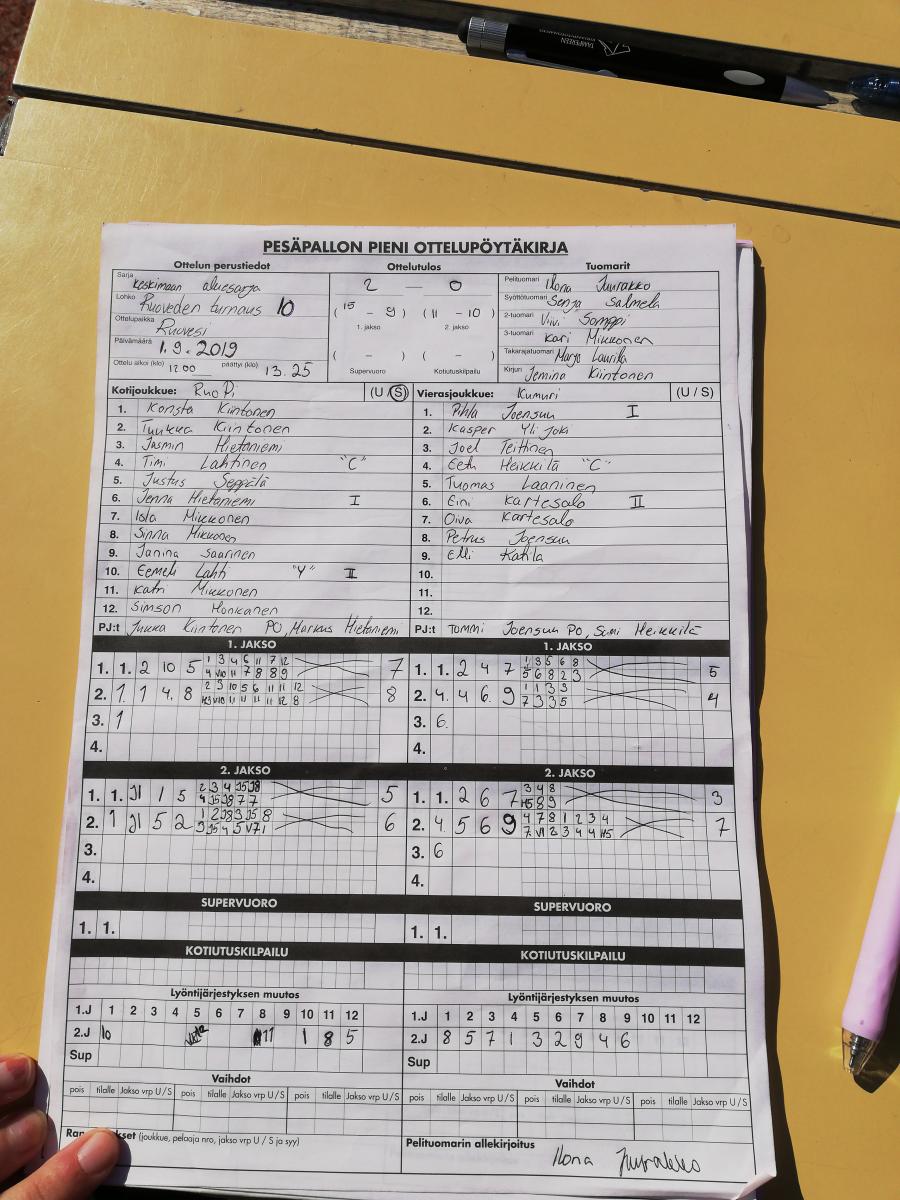 TAMPEREEN
PESÄPALLON PIENI OTTELUPÖYTÄKIRJA
Ottelun perustiedot
Sarja
keskimaan aluesarja
Lohko
Ruoveden turnaus 10
Ottelupaikka
Ruovesi
Päivämäärä
1.9.2019
Ottelu alkoi (klo) 12.00 päättyi (klo) 13.25
Ottelutulos
2 — 0
(15 - 9) (11 - 10)
1. jakso 2. jakso
( - ) ( - )
Supervuoro Kotiutuskilpailu
Tuomarit
Pelituomari Ilona Juurakko
Syöttötuomari Senja Salmela
2-tuomari Viivi Somppi
3-tuomari Kari Mikkonen
Takarajatuomari Marjo Laurila
Kirjuri Jemina Kiintonen
Kotijoukkue: RuoPi (U / S)
1. Konsta Kiintonen
2. Tuukka Kiintonen
3. Jasmin Hietaniemi
4. Timi Lahtinen "C"
5. Justus Seppälä
6. Jenna Hietaniemi I
7. Isla Mikkonen
8. Sinna Mikkonen
9. Janina Saarinen
10. Eemeli Lahti "Y" II
11. Katri Mikkonen
12. Simson Honkanen
PJ:t Jukka Kiintonen PO, Markus Hietaniemi
Vierasjoukkue: Kumuri (U / S)
1. Pihla Joensuu I
2. Kasper Yli Joki
3. Joel Teittinen
4. Eeth Heikkilä "C"
5. Tuomas Laaninen
6. Eini Kartesalo II
7. Oiva Kartesalo
8. Petrus Joensuu
9. Elli Katila
10.
11.
12.
PJ:t Tommi Joensuu PO, Sami Heikkilä
1. JAKSO
1. 1. 2 10 5 1 3 4 6 11 7 12 7
4 V10 11 7 8 8 9
2. 1. 1 4. 8 2 3 10 5 6 11 11 12 8
3. 1
4.
1. JAKSO
1. 1. 2 4 7 1 3 5 6 8 5
5 6 8 2 3
2. 4. 4 6. 9 1 1 3 3 4
7 3 3 5
3. 6.
4.
2. JAKSO
1. 1. J1 1 5 2 3 4 J5 J8 5
4 J5 J8 7 7
2. 1 J1 5 2 1 2 J8 3 J5 8 6
3.
4.
2. JAKSO
1. 1. 2 6 7 3 4 8 3
H5 8 9
2. 4. 5 6 9 4 7 8 1 2 3 4 7
7. V1 2 3 4 4 H5
3. 6
4.
SUPERVUORO
1. 1.
SUPERVUORO
1. 1.
KOTIUTUSKILPAILU
KOTIUTUSKILPAILU
Lyöntijärjestyksen muutos
1.J 1 2 3 4 5 6 7 8 9 10 11 12
2.J 10 11 1 8 5
Sup
Lyöntijärjestyksen muutos
1.J 1 2 3 4 5 6 7 8 9 10 11 12
2.J 8 5 7 1 3 2 9 4 6
Sup
Vaihdot
pois tilalle Jakso vrp U / S pois tilalle Jakso vrp U / S pois tilalle Jakso vrp U / S
Vaihdot
pois tilalle Jakso vrp U / S pois tilalle Jakso vrp U / S pois tilalle Jakso vrp U / S
(joukkue, pelaaja nro, jakso vrp U / S ja syy)
Pelituomarin allekirjoitus
Ilona Juurakko